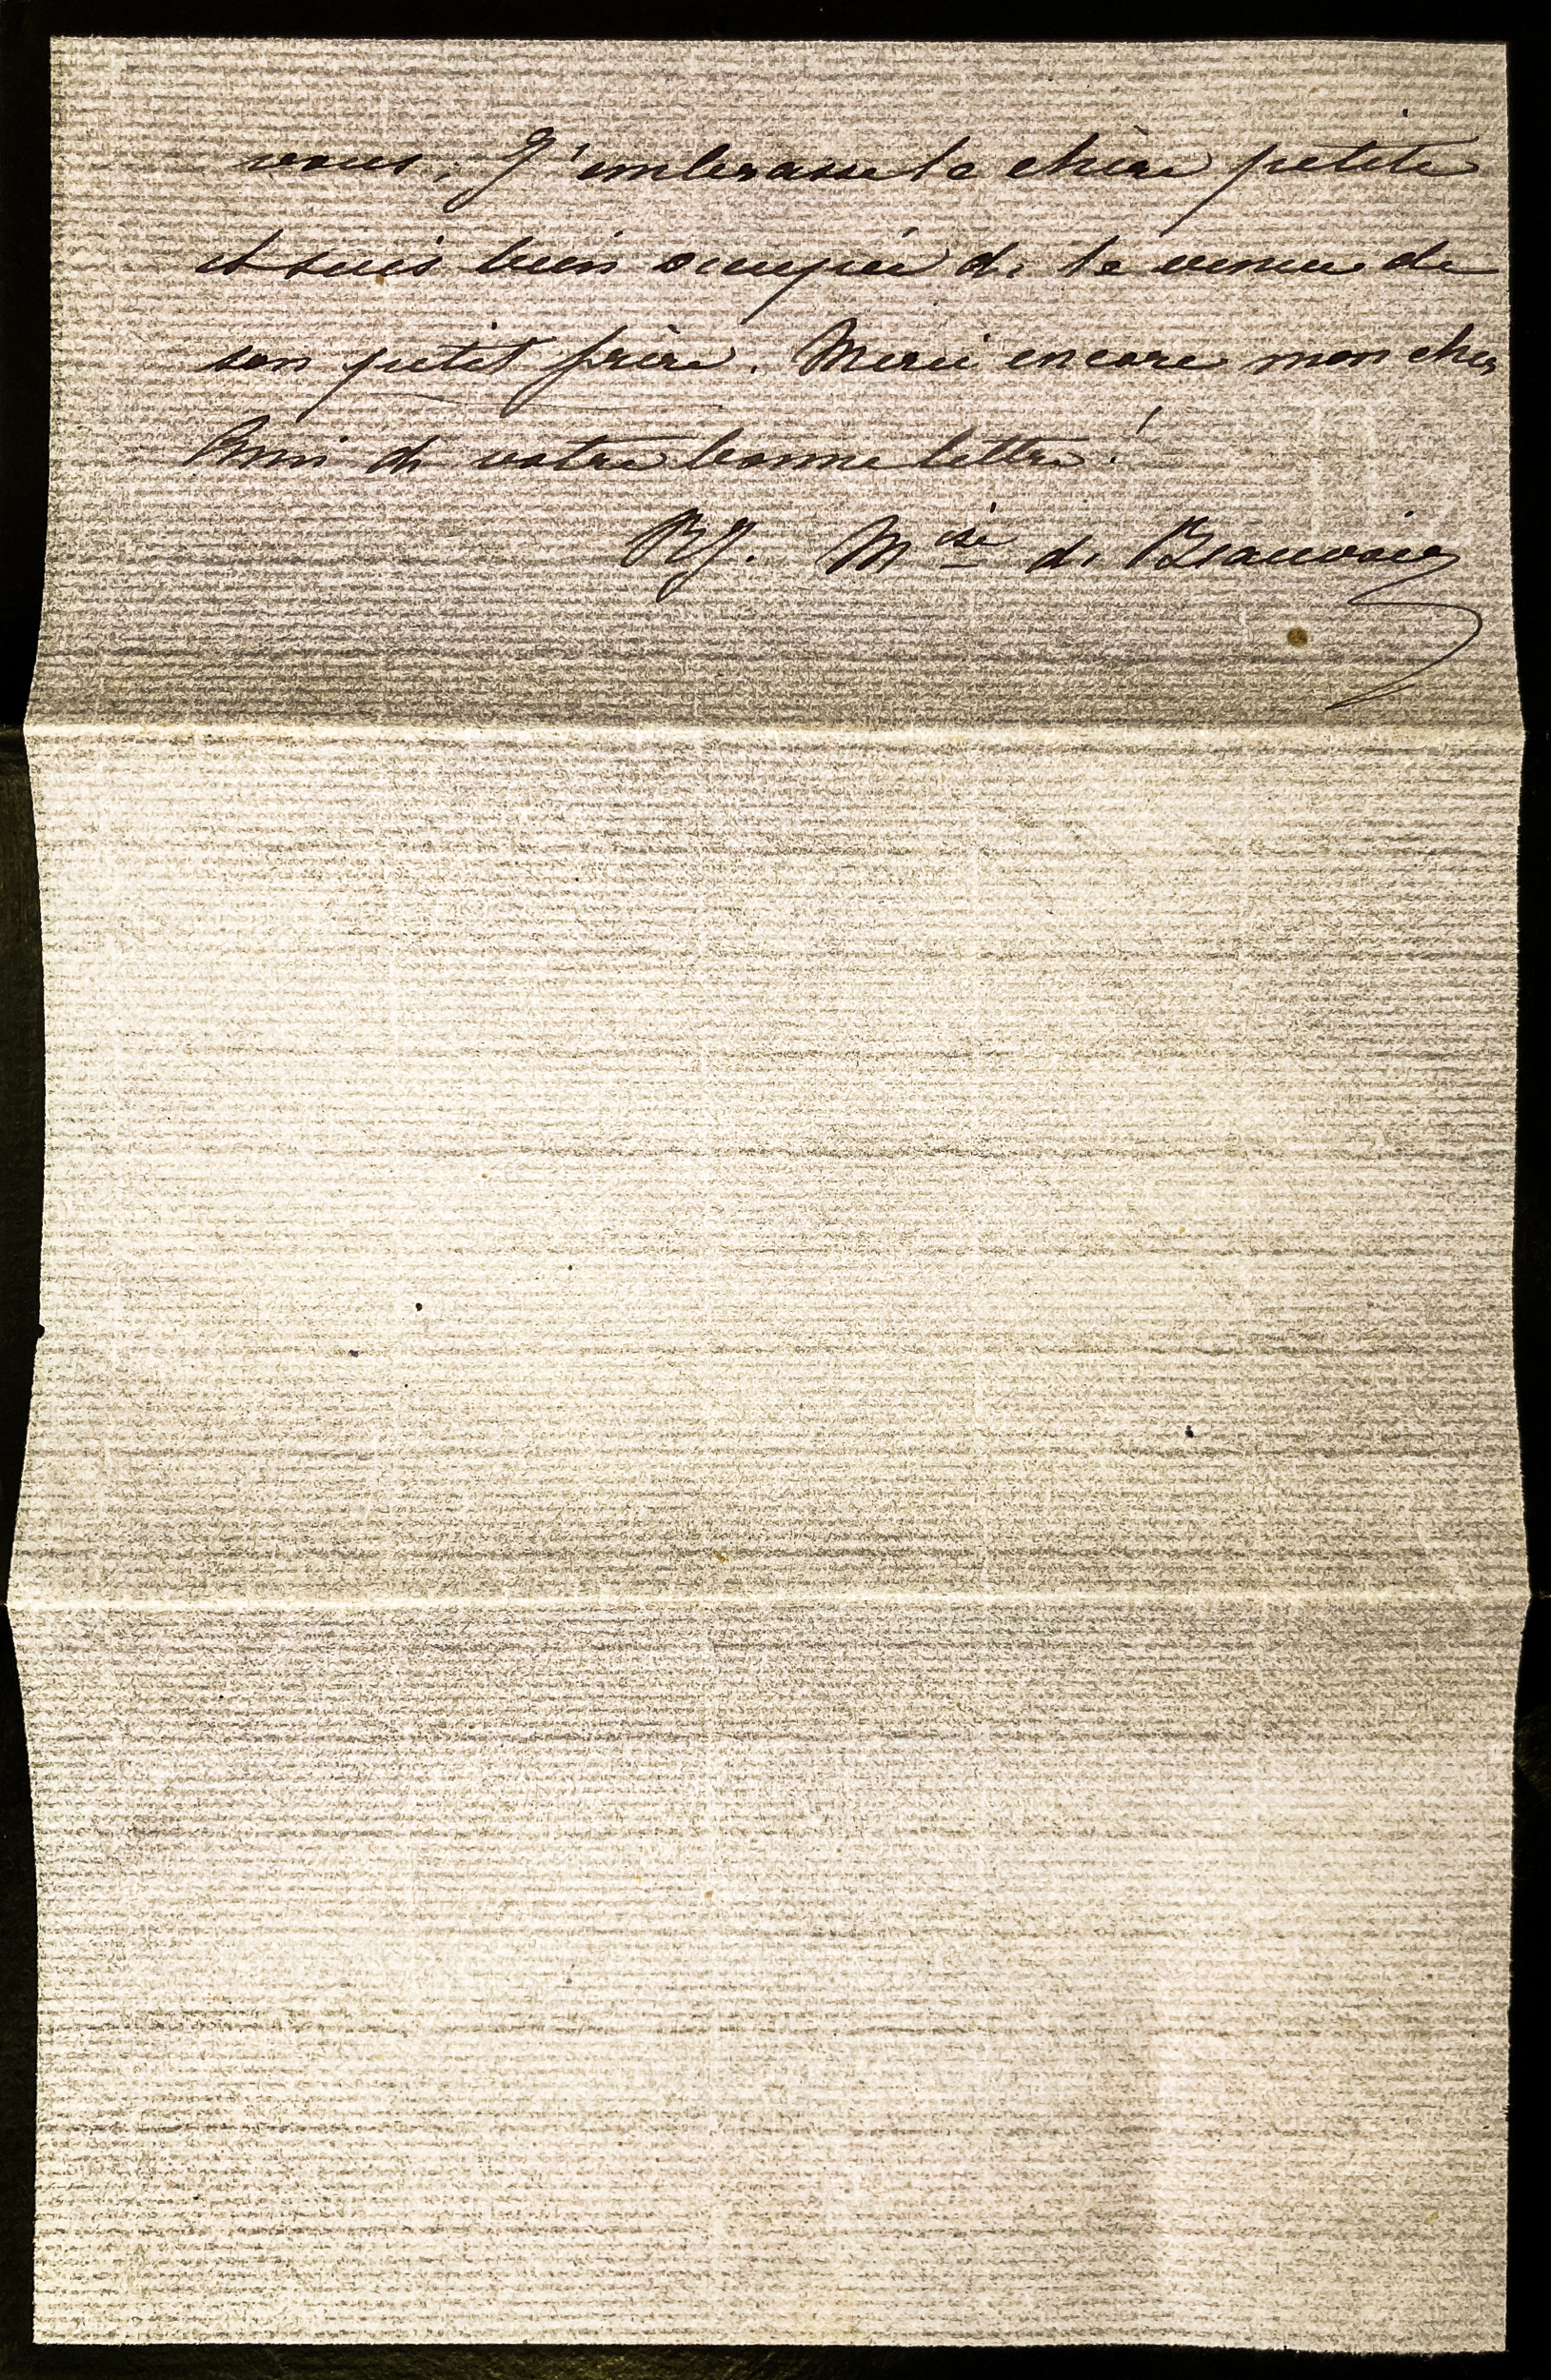 vous. J'embrasse la chère petite
et suis bien occupée de la venue de
son petit frère. Merci encore mon cher
Ami de votre bonne lettre !
RJ. Mise de Beauvoir